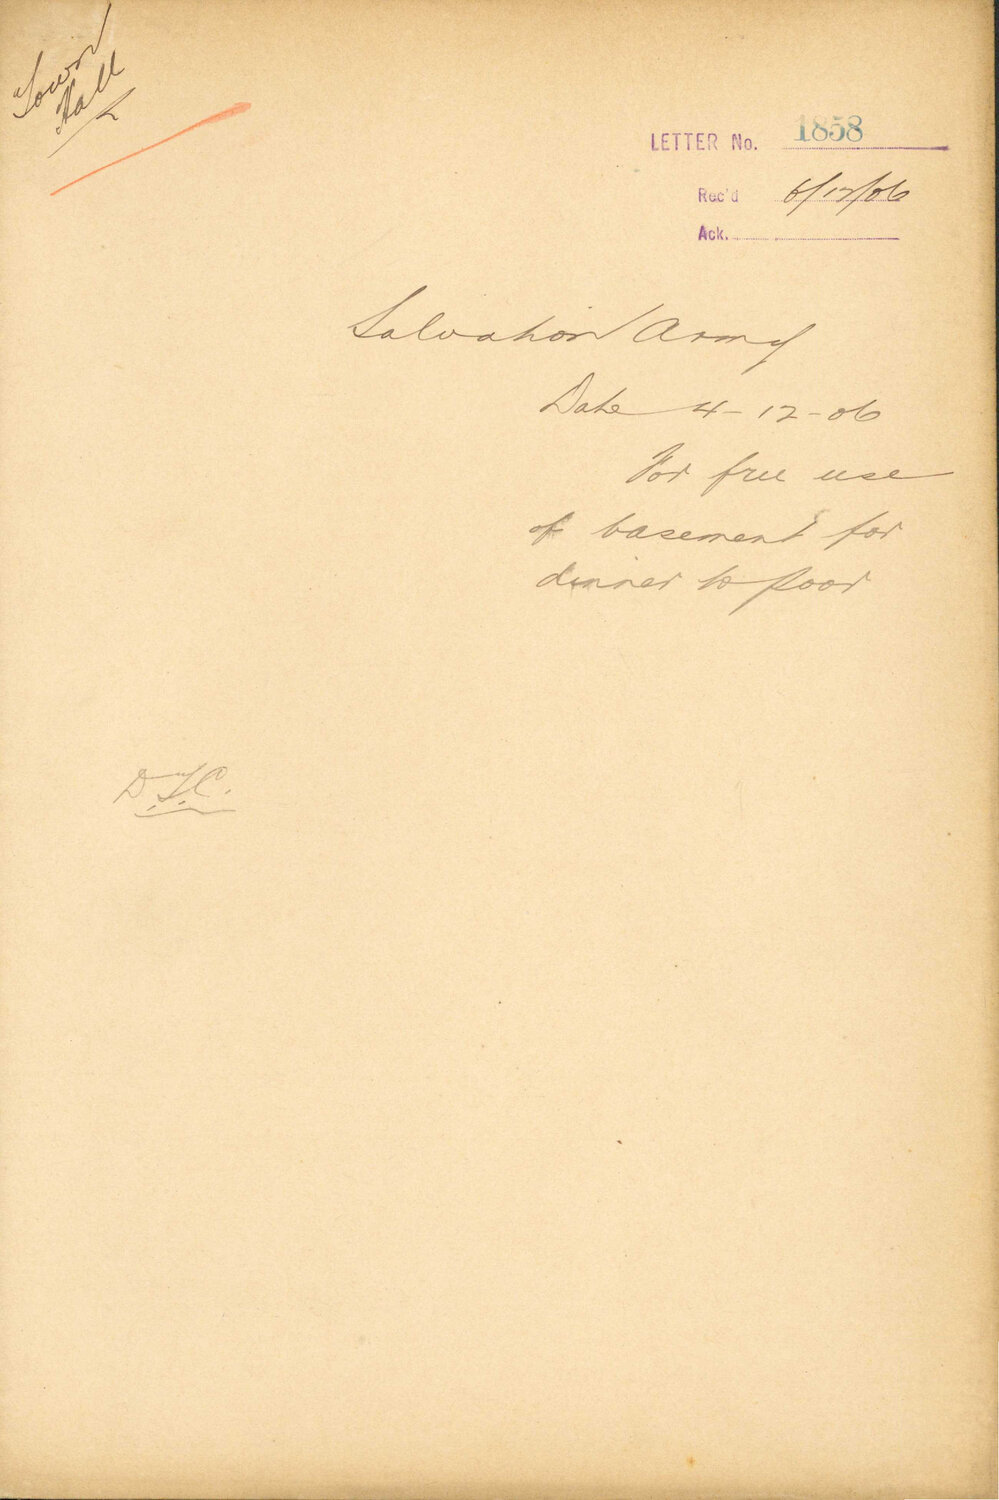 Town
Hall
LETTER No. 1858
Rec'd 6/12/06
Ack.
Salvation Army
Date 4-12-06
For free use
of basement for
dinner to poor
D.T.C.